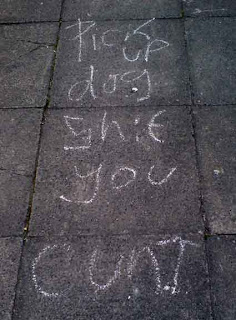 Pick
up
dog
shit
you
cunt